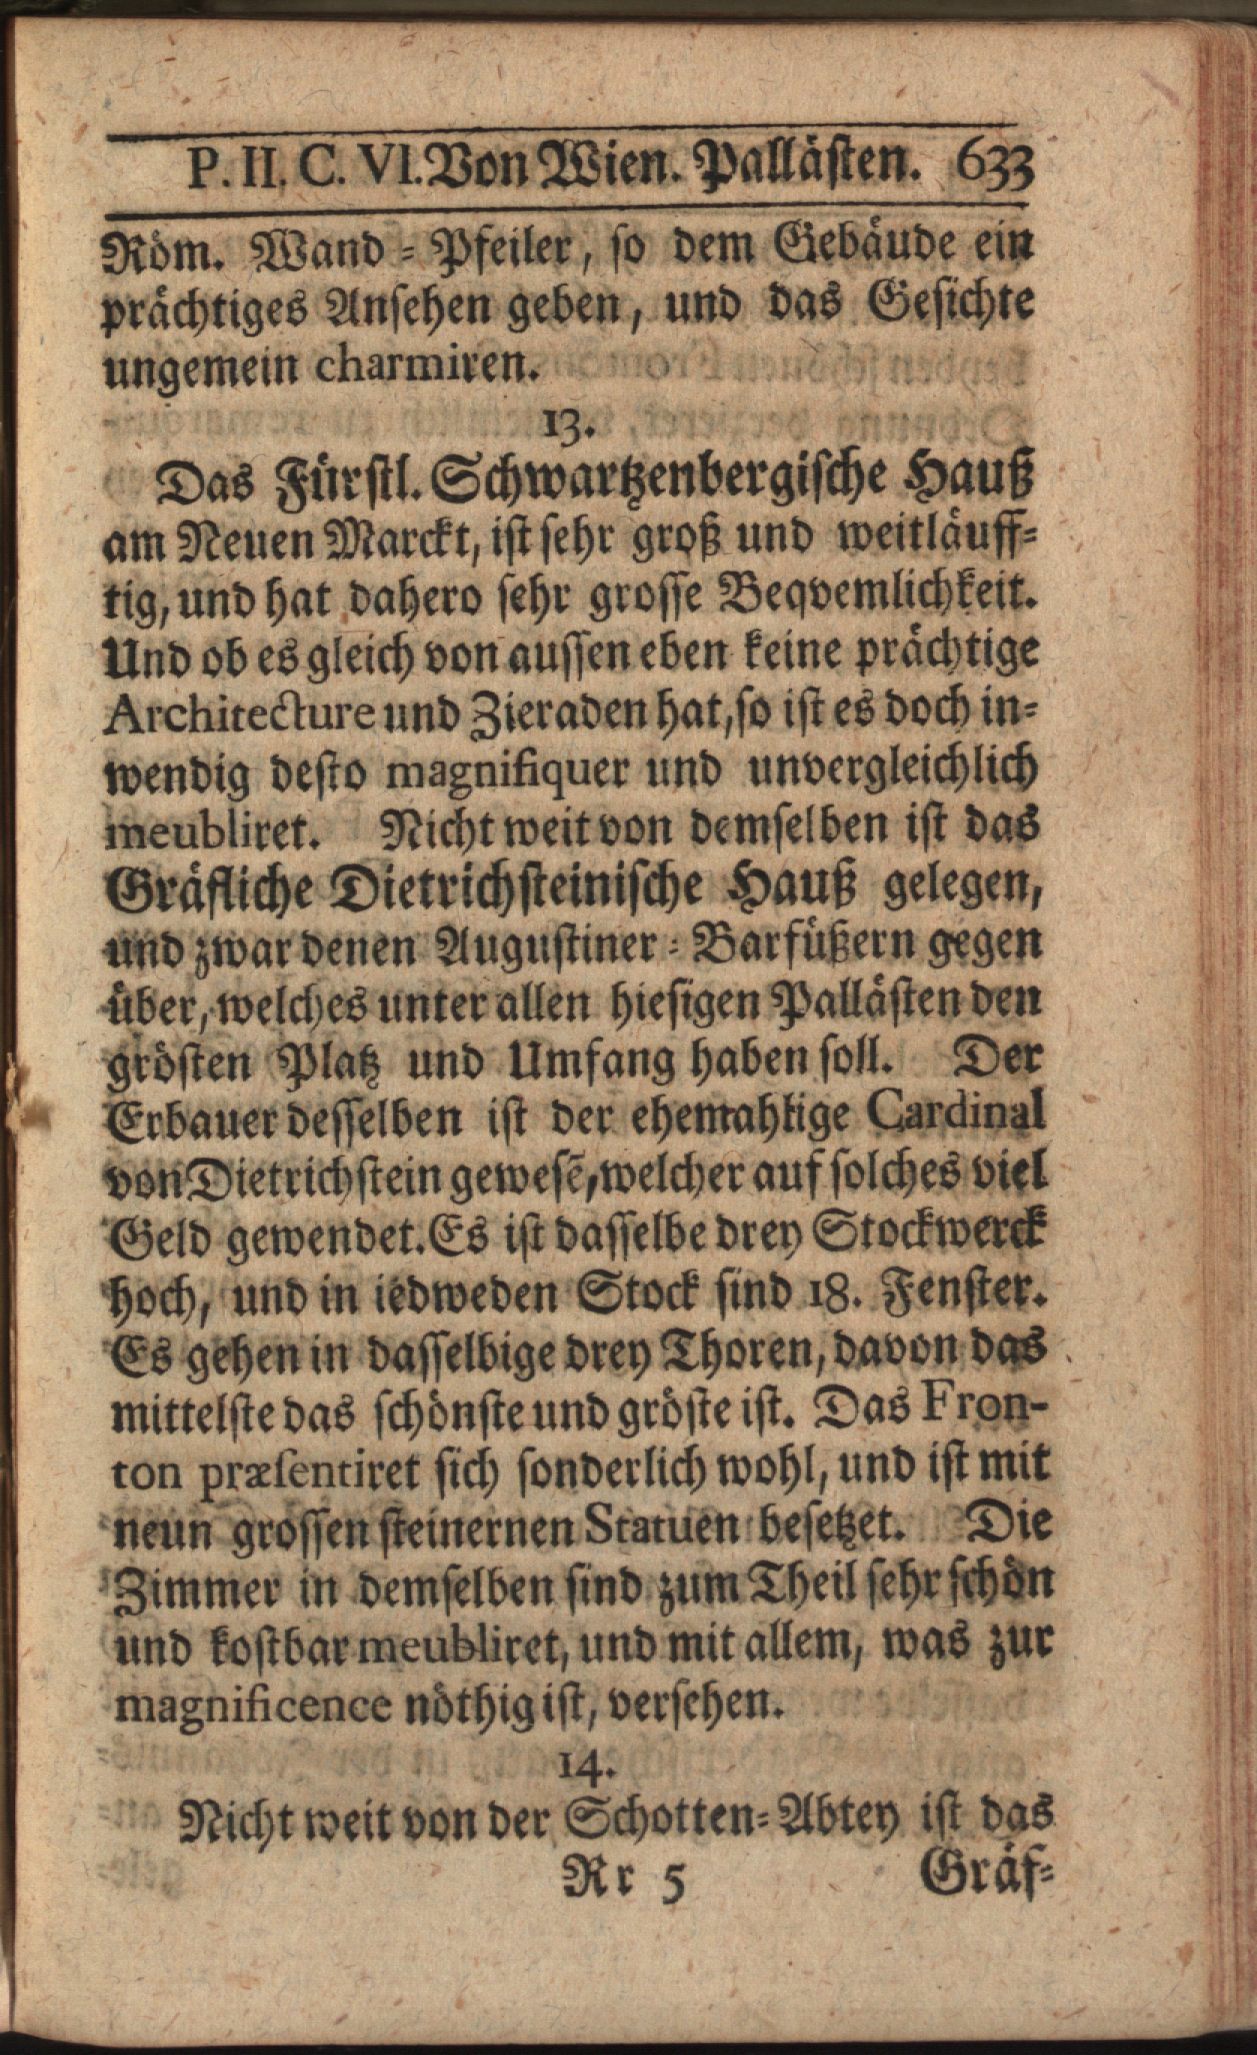 P. II. C. VI. Von Wien. Pallästen. 633
Röm. Wand-Pfeiler, so dem Gebäude ein
prächtiges Ansehen geben, und das Gesichte
ungemein charmiren.
13.
Das Fürstl. Schwartzenbergische Hauß
am Neuen Marckt, ist sehr groß und weitläuff-
tig, und hat dahero sehr grosse Beqvemlichkeit.
Und ob es gleich von aussen eben keine prächtige
Architecture und Zieraden hat, so ist es doch in-
wendig desto magnifiquer und unvergleichlich
meubliret. Nicht weit von demselben ist das
Gräfliche Dietrichsteinische Hauß gelegen,
und zwar denen Augustiner-Barfüßern gegen
über, welches unter allen hiesigen Pallästen den
grösten Platz und Umfang haben soll. Der
Erbauer desselben ist der ehemahlige Cardinal
von Dietrichstein gewesē, welcher auf solches viel
Geld gewendet. Es ist dasselbe drey Stockwerck
hoch, und in iedweden Stock sind 18. Fenster.
Es gehen in dasselbige drey Thoren, davon das
mittelste das schönste und gröste ist. Das Fron-
ton præsentiret sich sonderlich wohl, und ist mit
neun grossen steinernen Statuen besetzet. Die
Zimmer in demselben sind zum Theil sehr schön
und kostbar meubliret, und mit allem, was zur
magnificence nöthig ist, versehen.
14.
Nicht weit von der Schotten-Abtey ist das
Rr 5 Gräf-